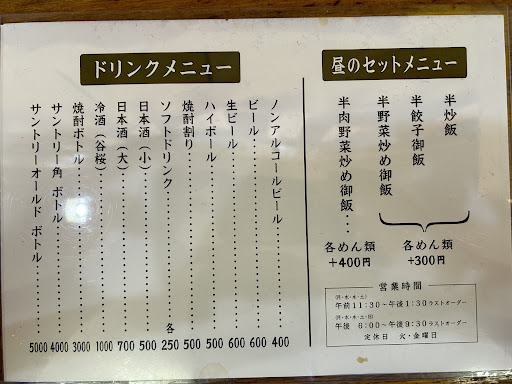 昼のセットメニュー
半炒飯
半餃子御飯
半野菜炒め御飯
各めん類
+300円
半肉野菜炒め御飯…
各めん類
+400円
営業時間
午前11:30～午後1:30ラストオーダー
午後 6:00～午後9:30ラストオーダー
定休日 火・金曜日
ドリンクメニュー
ノンアルコールビール……400
ビール……600
生ビール……600
ハイボール……500
焼酎割り……500
ソフトドリンク……各250
日本酒（小）……500
日本酒（大）……700
冷酒（谷桜）……1000
焼酎ボトル……3000
サントリー角 ボトル……4000
サントリーオールド ボトル……5000